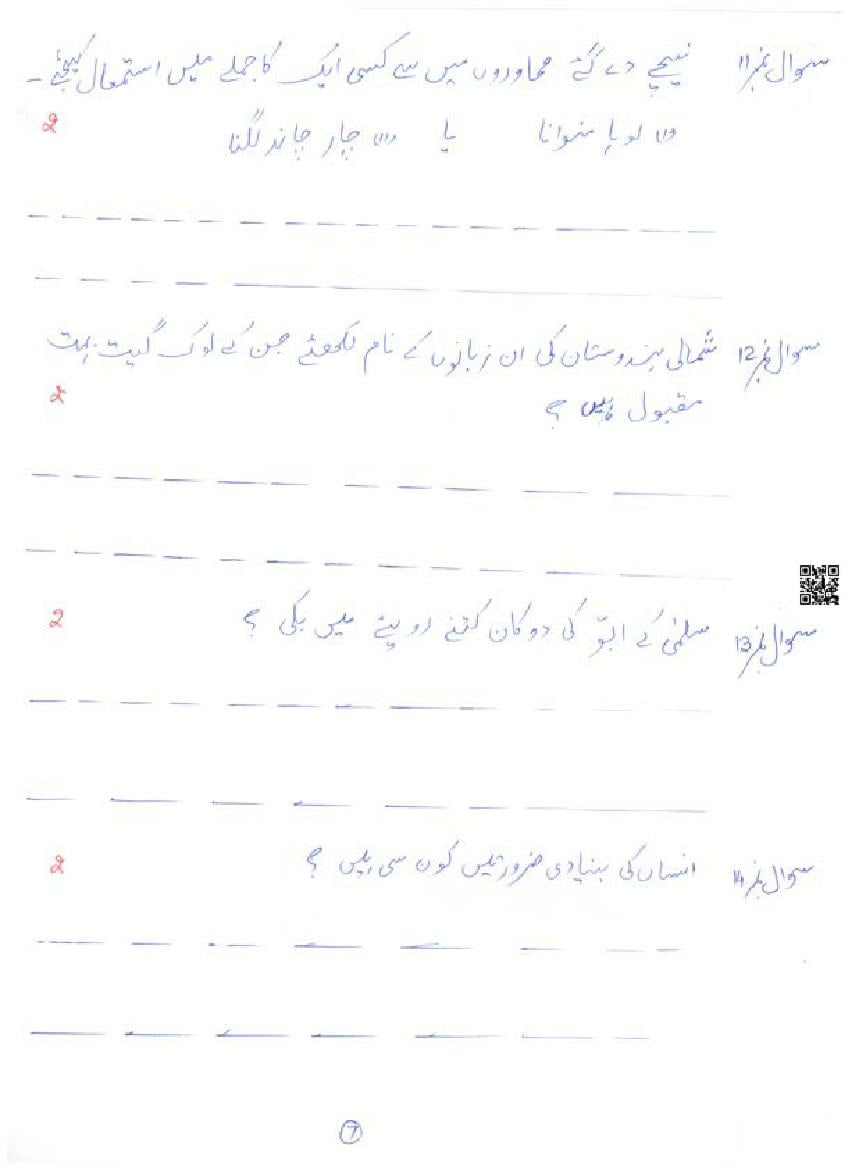 سوال نمبر 11 نیچے دے گئے محاوروں میں سے کسی ایک کا جملے میں استعمال کیجئے۔
(i) لوہا منوانا یا (ii) چار چاند لگنا 2
سوال نمبر 12 شمالی ہندوستان کی ان زبانوں کے نام لکھئے جن کے لوک گیت بہت
مقبول ہیں ؟ 2
سوال نمبر 13 سلمٰی کے ابّو کی دوکان کتنے روپئے میں بکی ؟ 2
سوال نمبر 14 انسان کی بنیادی ضرورتیں کون سی ہیں ؟ 2
7